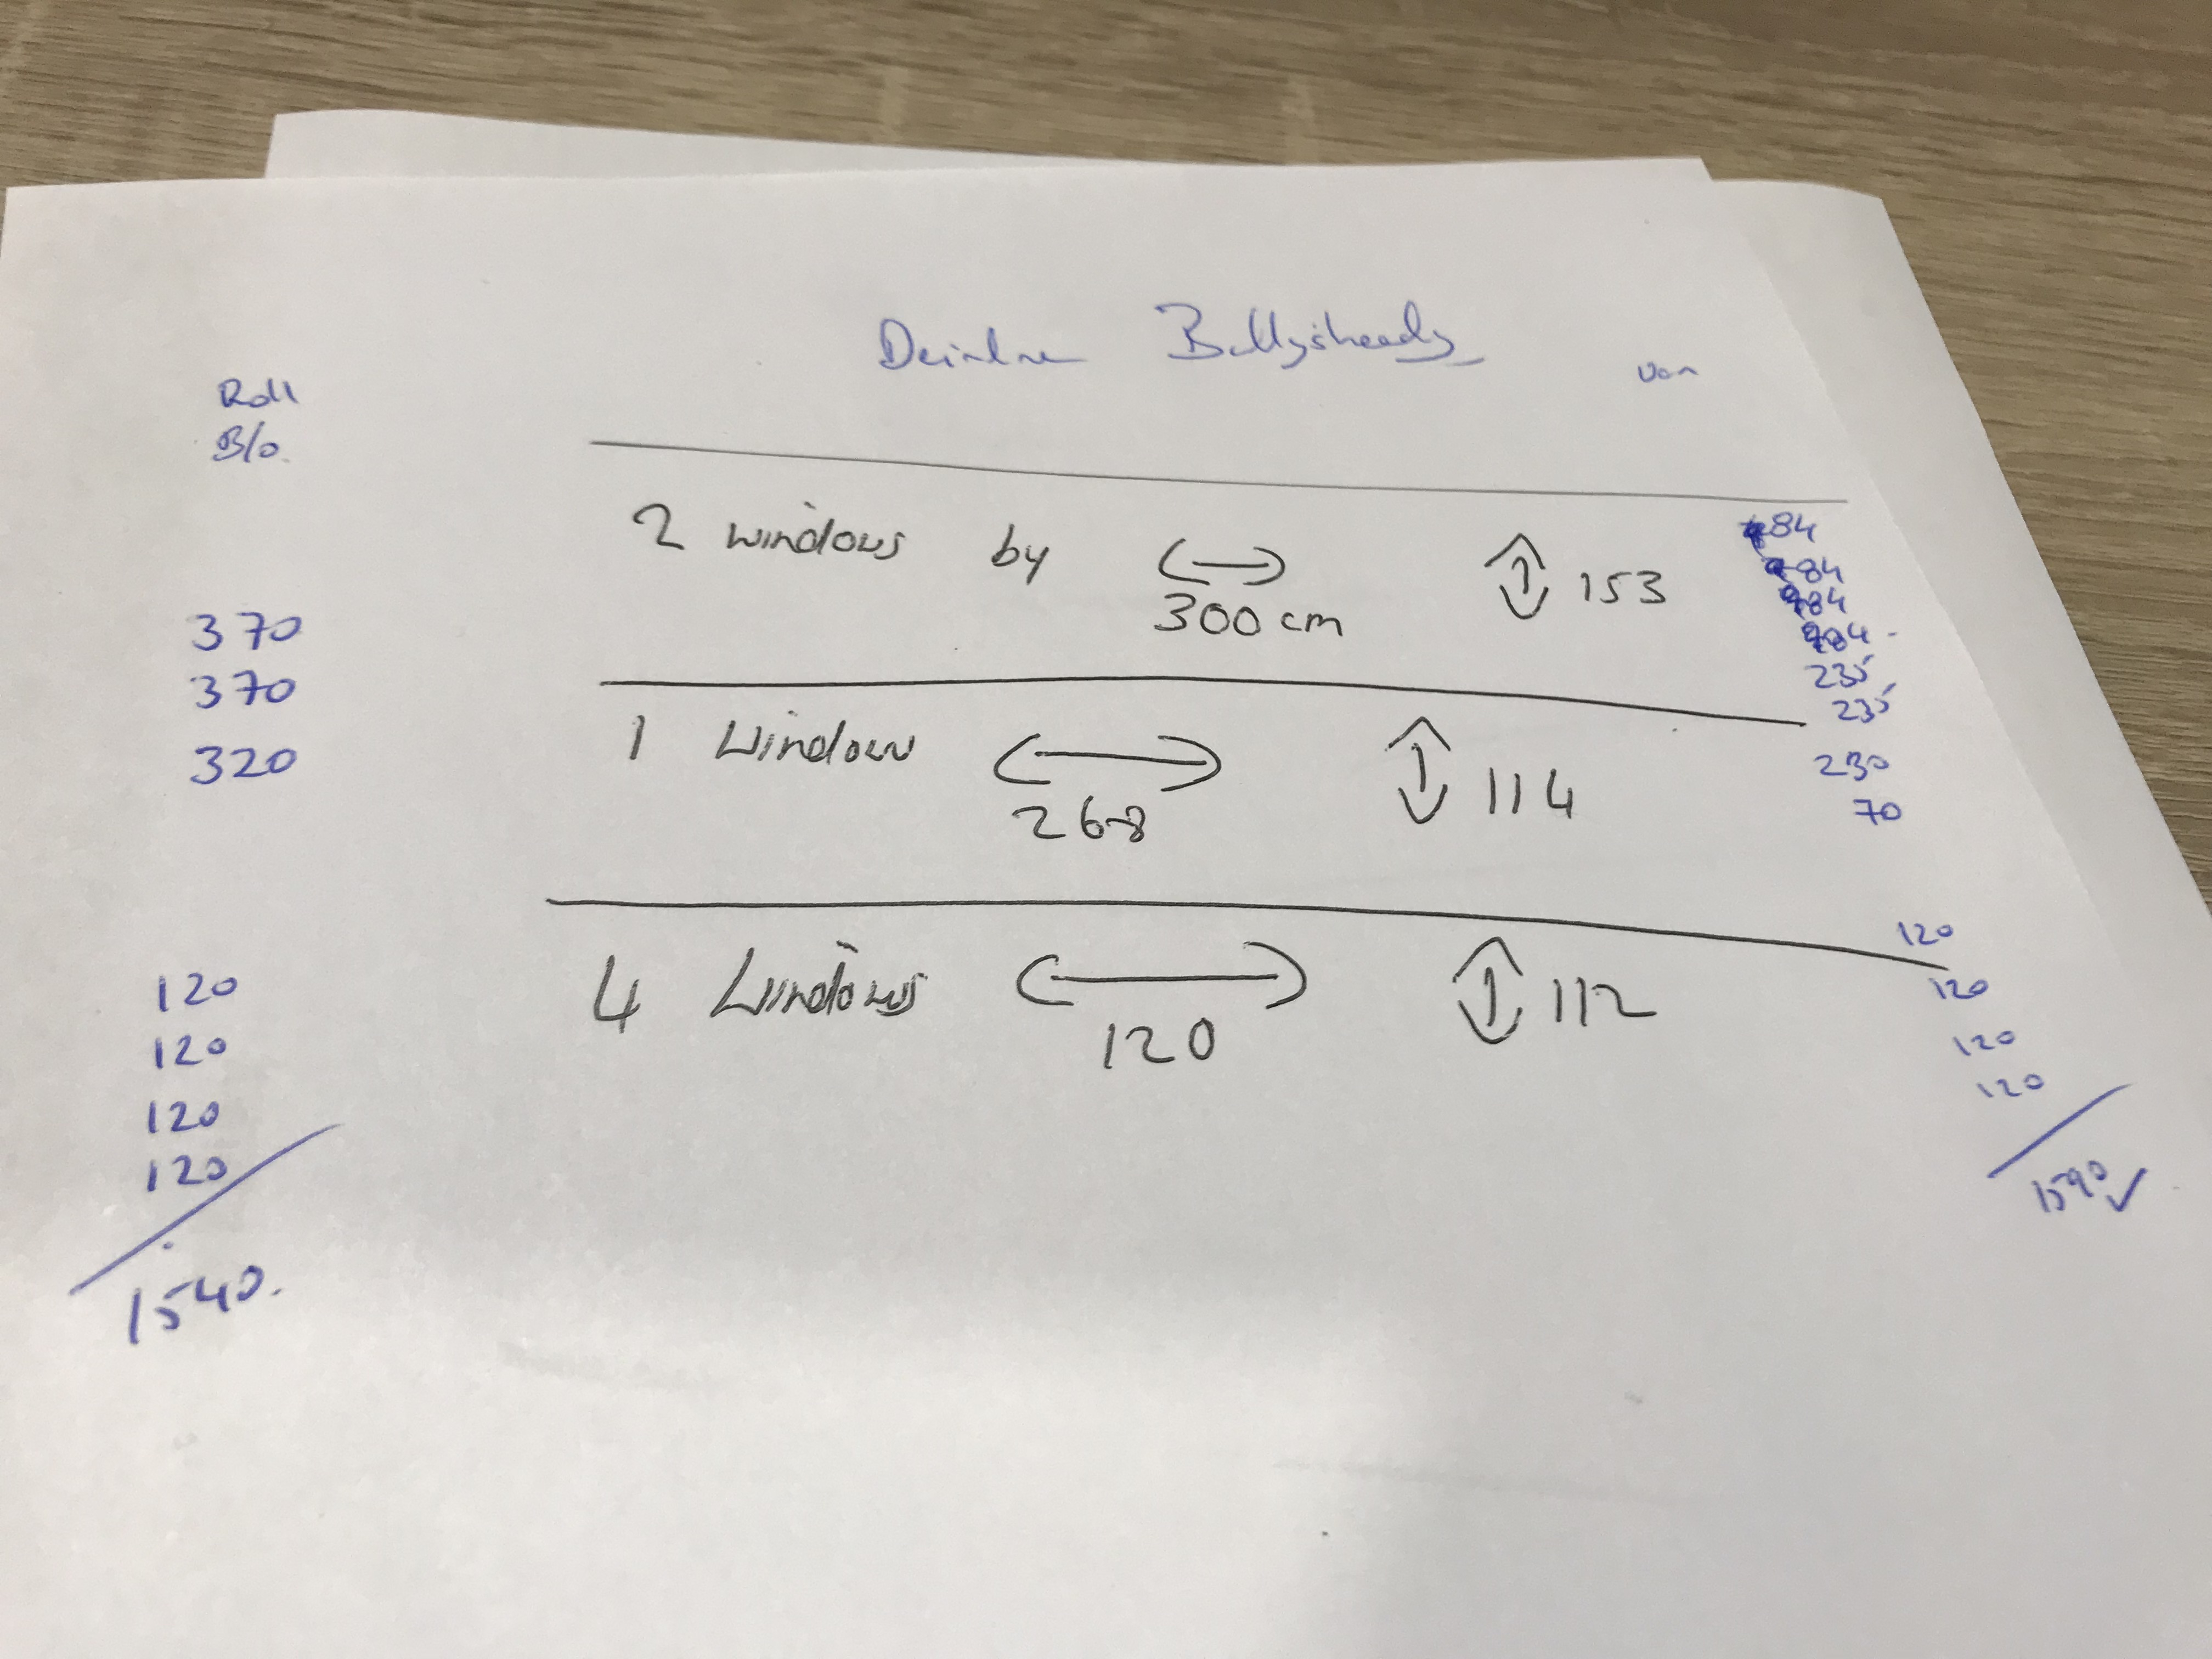 Deirdre Ballysheedy
Ven
Roll
B/o.
2 windows by 300 cm 153
84
84
84
84
235
235
370
370
1 Window 268 114
320
230
70
4 Windows 120 112
120
120
120
120
1540.
120
120
120
120
1590 ✓